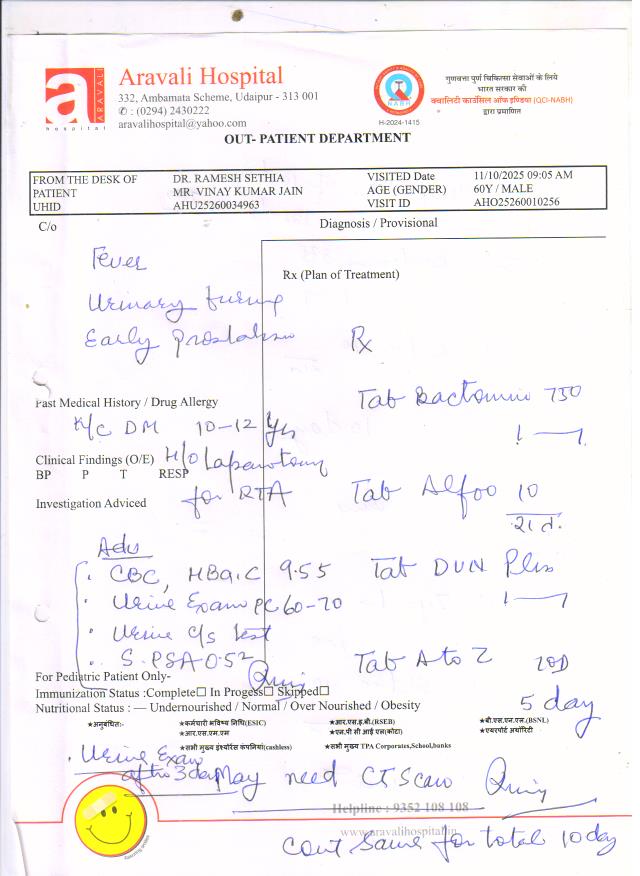 Aravali Hospital
332, Ambamata Scheme, Udaipur - 313 001
✆ : (0294) 2430222
aravalihospital@yahoo.com
a ARAVALI
hospital
NABH
H-2024-1415
गुणवत्ता पूर्ण चिकित्सा सेवाओं के लिये
भारत सरकार की
क्वालिटी काउंसिल ऑफ इण्डिया (QCI-NABH)
द्वारा प्रमाणित
OUT- PATIENT DEPARTMENT
FROM THE DESK OF DR. RAMESH SETHIA VISITED Date 11/10/2025 09:05 AM
PATIENT MR. VINAY KUMAR JAIN AGE (GENDER) 60Y / MALE
UHID AHU25260034963 VISIT ID AHO25260010256
C/o Diagnosis / Provisional
Fever
Urinary
Early
Past Medical History / Drug Allergy
K/C DM 10-12 Yrs
Clinical Findings (O/E) H/O Laparotomy
BP P T RESP
for RTA
Investigation Adviced
Adv
CBC, HBA1C 9.55
Urine Exam PC 60-70
Urine C/S test
S. PSA 0.52
Rx (Plan of Treatment)
Rx
Tab 750
1
Tab Alfoo 10
Tab Plus
1
Tab A to Z
5 day
For Pediatric Patient Only-
Immunization Status :Complete☐ In Progess☐ Skipped☐
Nutritional Status : — Undernourished / Normal / Over Nourished / Obesity
★अनुबंधितः- ★कर्मचारी भविष्य निधि(ESIC) ★आर.एस.इ.बी.(RSEB) ★बी.एस.एन.एल.(BSNL)
★आर.एस.एम.एम ★एन.पी सी आई एल(कोटा) ★एयरपोर्ट अथॉरिटी
★सभी मुख्य इंश्योरेंस कंपनियां(cashless) ★सभी मुख्य TPA Corporates,School,banks
Urine Exam
after 3 day May need CT Scan
Helpline : 9352 108 108
www.aravalihospital.in
cont same for total 10 day